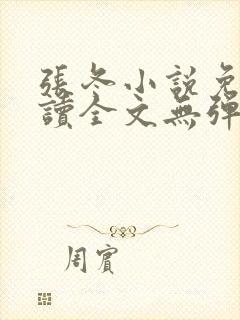 張冬小説免
讀全文無彈
周賓